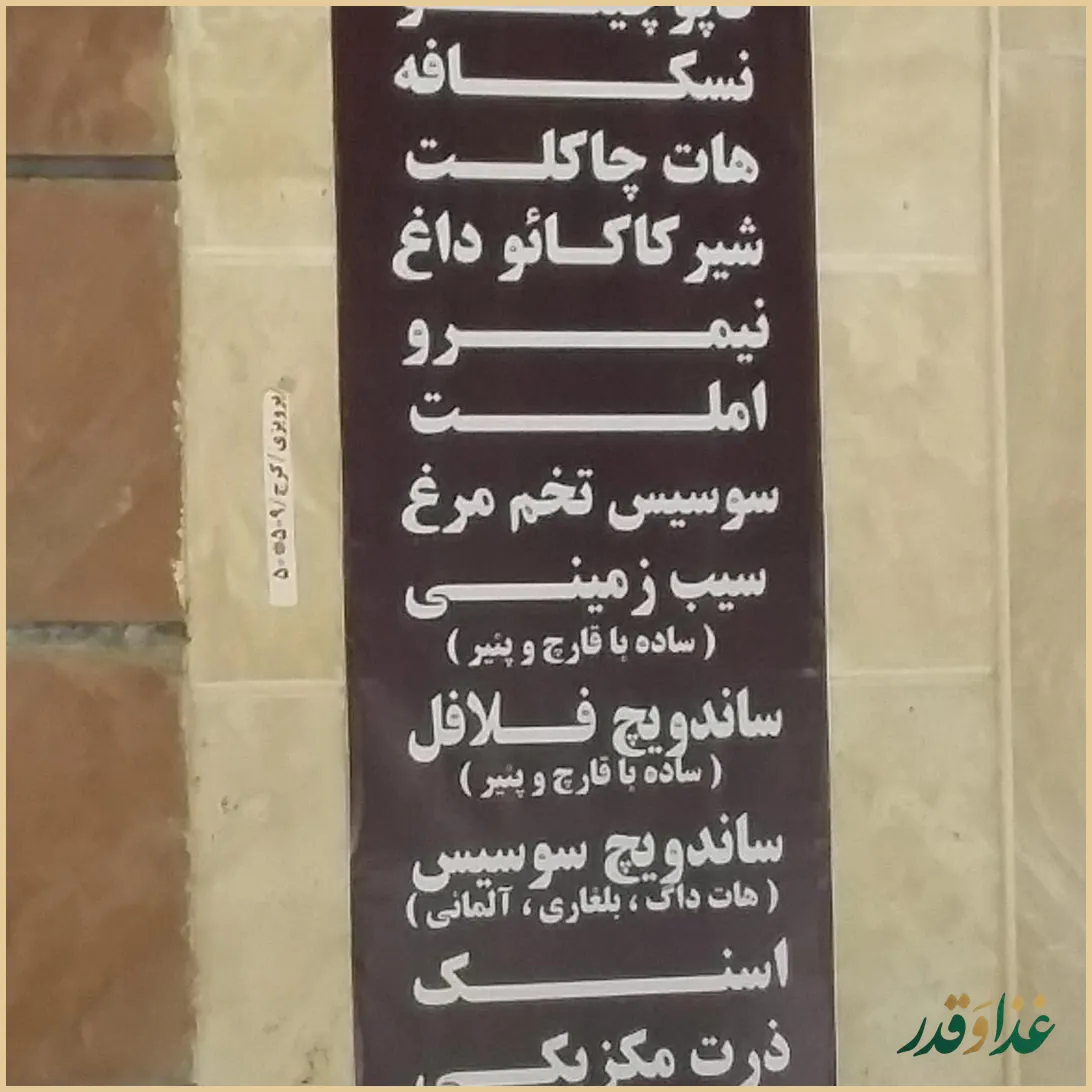 کاپوچینو
نسکافه
هات چاکلت
شیر کاکائو داغ
نیمرو
املت
سوسیس تخم مرغ
سیب زمینی
( ساده با قارچ و پنیر )
ساندویچ فلافل
( ساده با قارچ و پنیر )
ساندویچ سوسیس
( هات داگ ، بلغاری ، آلمانی )
اسنک
ذرت مکزیکی
غذا و قدر